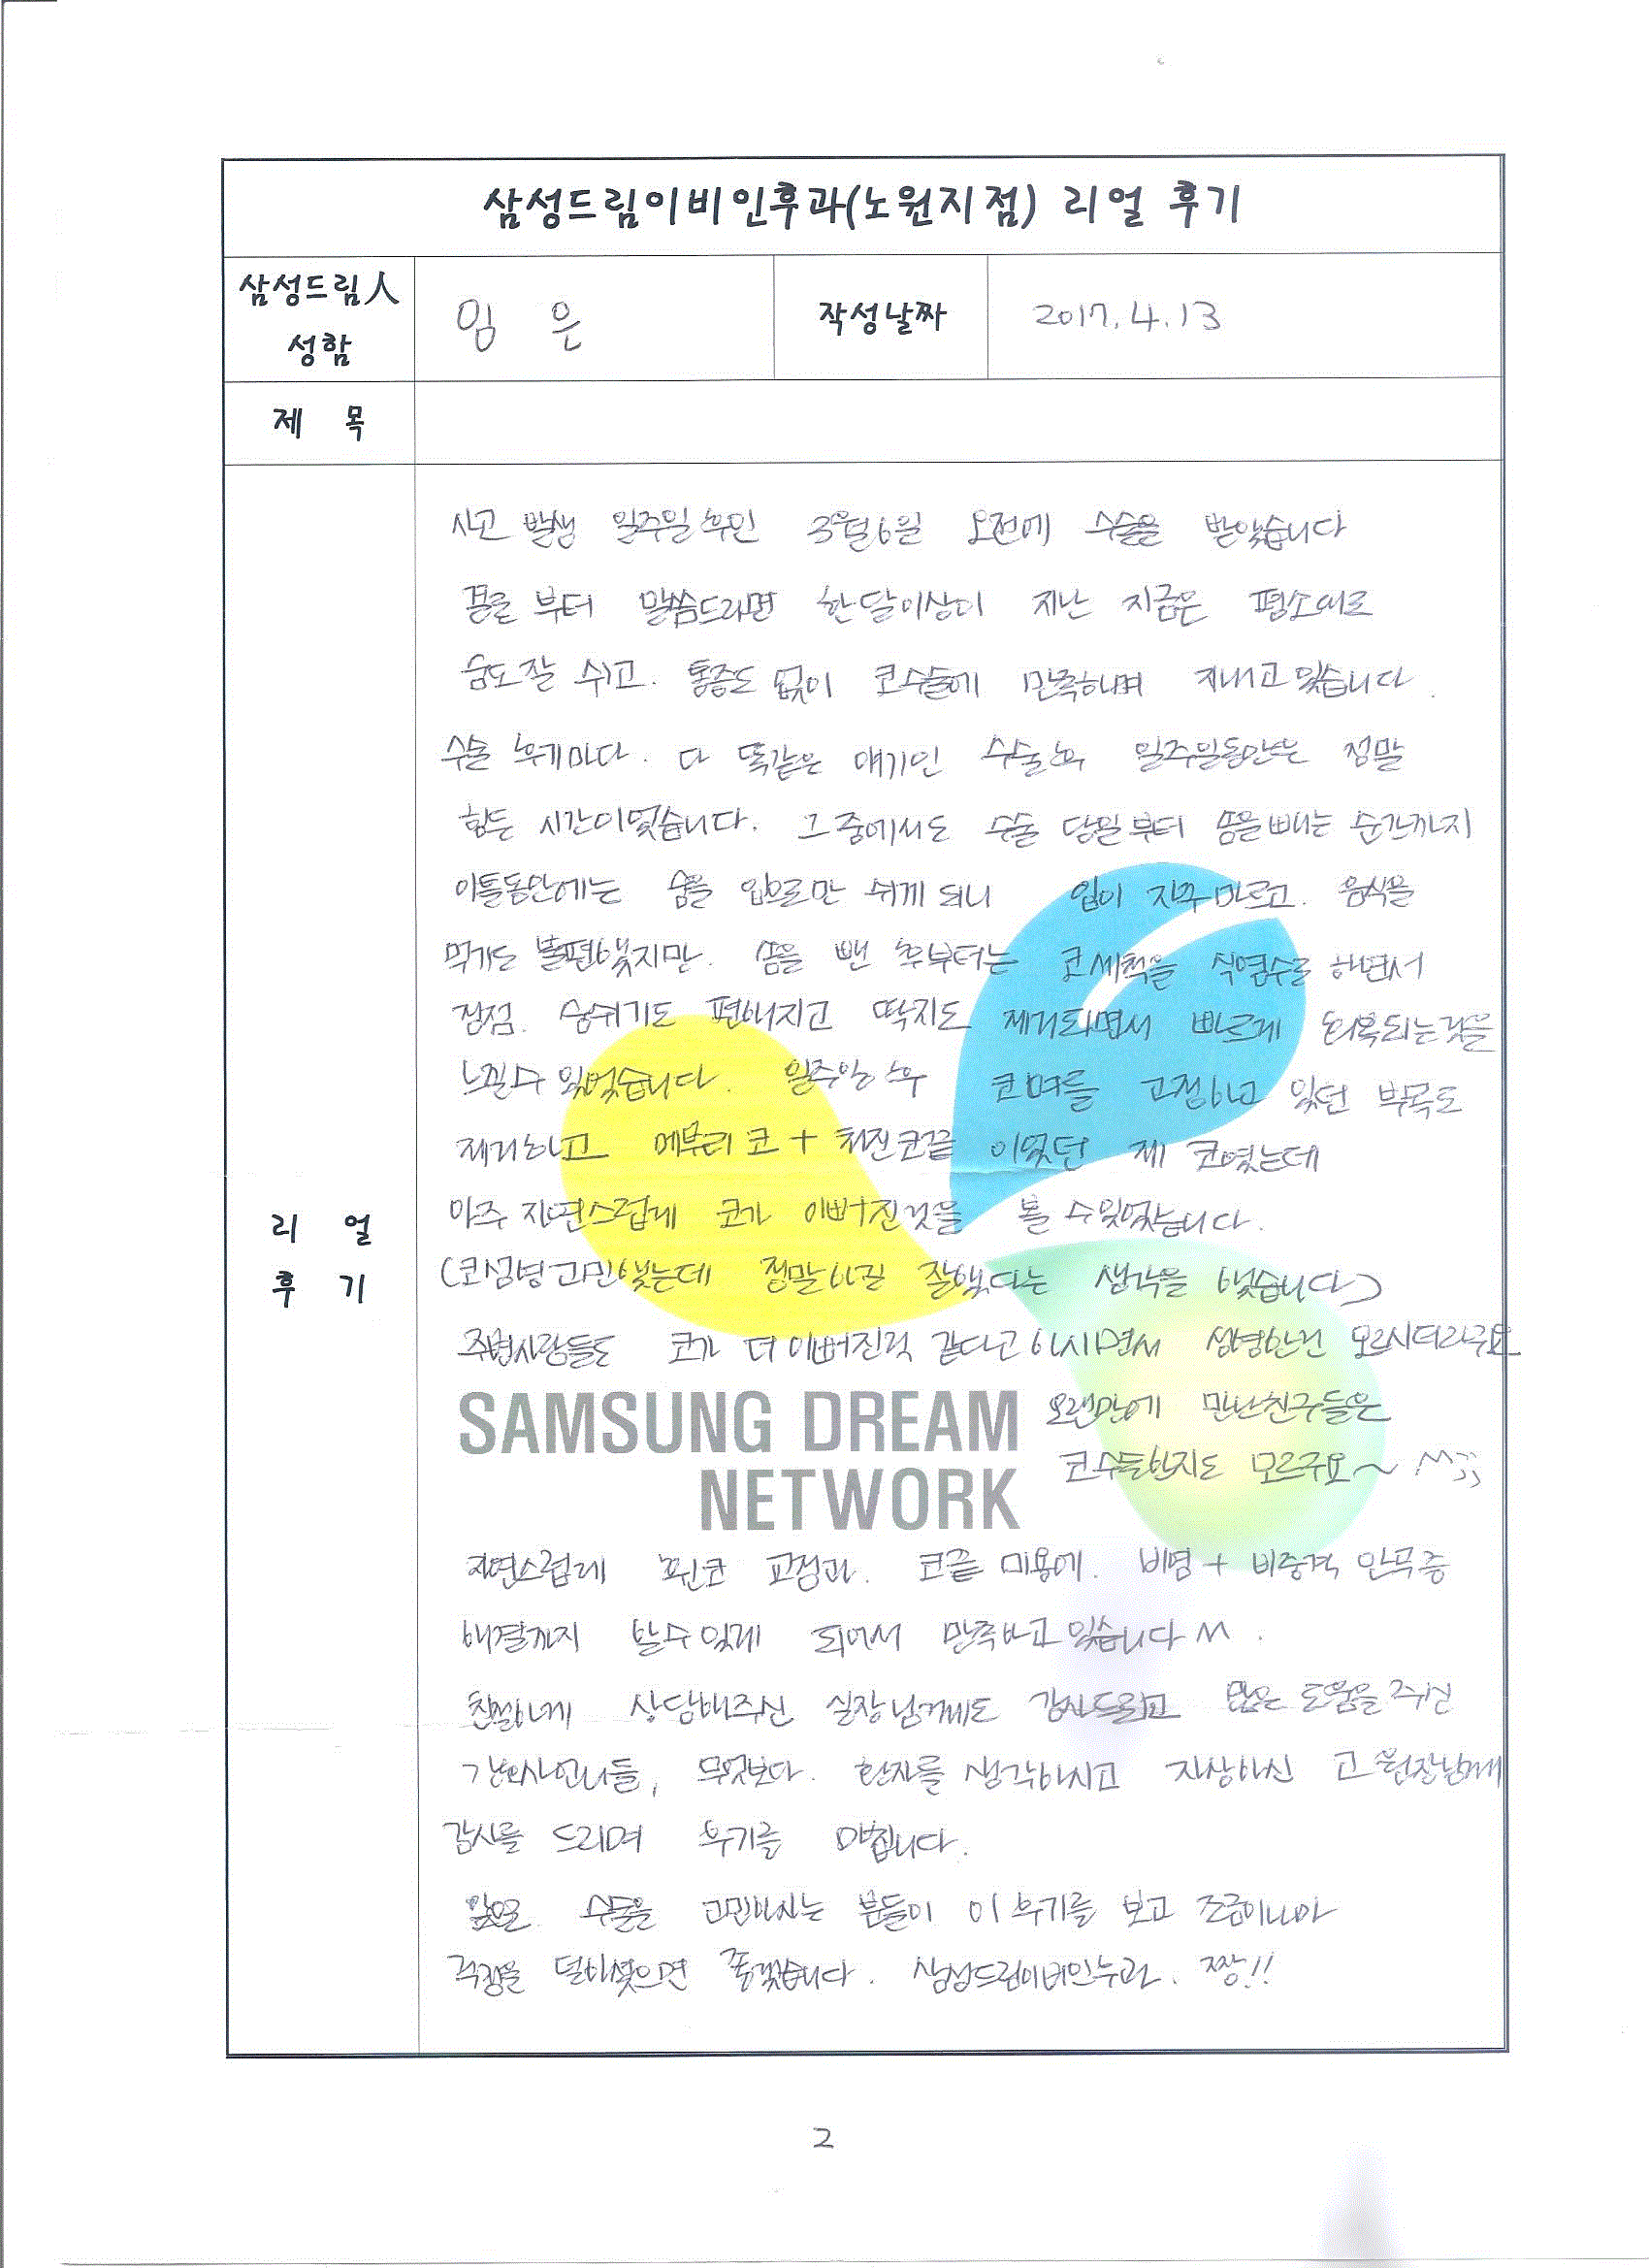 삼성드림이비인후과(노원지점) 리얼 후기
삼성드림人
성함
임 은
작성날짜
2017.4.13
제 목
리 얼
후 기
사고 발생 일주일후인 3월6일 오전에 수술을 받았습니다
결론부터 말씀드리면 한달이상이 지난 지금은 평소대로
숨도 잘 쉬고. 통증도 없이 코수술에 만족하며 지내고 있습니다.
수술 후기마다. 다 똑같은 얘기인 수술후 일주일동안은 정말
힘든 시간이였습니다. 그중에서도 수술 당일부터 솜을빼는 순간까지
이틀동안에는 숨을 입으로만 쉬게 되니 입이 자주 마르고. 음식을
먹기도 불편했지만. 솜을 뺀 후부터는 코세척을 식염수로 하면서
점점. 숨쉬기도 편해지고 딱지도 제거되면서 빠르게 회복되는것을
느낄수 있었습니다. 일주일 후 코뼈를 고정하고 있던 부목도
제거하고 메부리코 + 처진코끝 이였던 제 코였는데
아주 자연스럽게 코가 이뻐진것을 볼 수있었습니다.
(코성형고민했는데 정말하길 잘했다는 생각을 했습니다)
주변사람들도 코가 더 이뻐진것 같다고 하시면서 성형한건 모르시더라구요
오랜만에 만난친구들은
코수술한지도 모르구요~ ^^;;
SAMSUNG DREAM
NETWORK
자연스럽게 휜코 교정과. 코끝 미용에. 비염 + 비중격 만곡증
해결까지 할수있게 되어서 만족하고 있습니다 ^^.
친절하게 상담해주신 실장님께도 감사드리고 많은 도움을 주신
간호사언니들, 무엇보다. 환자를 생각하시고 자상하신 고원장님께
감사를 드리며 후기를 마칩니다.
앞으로 수술을 고민하시는 분들이 이 후기를 보고 조금이나마
걱정을 덜하셨으면 좋겠습니다. 삼성드림이비인후과. 짱!!
2